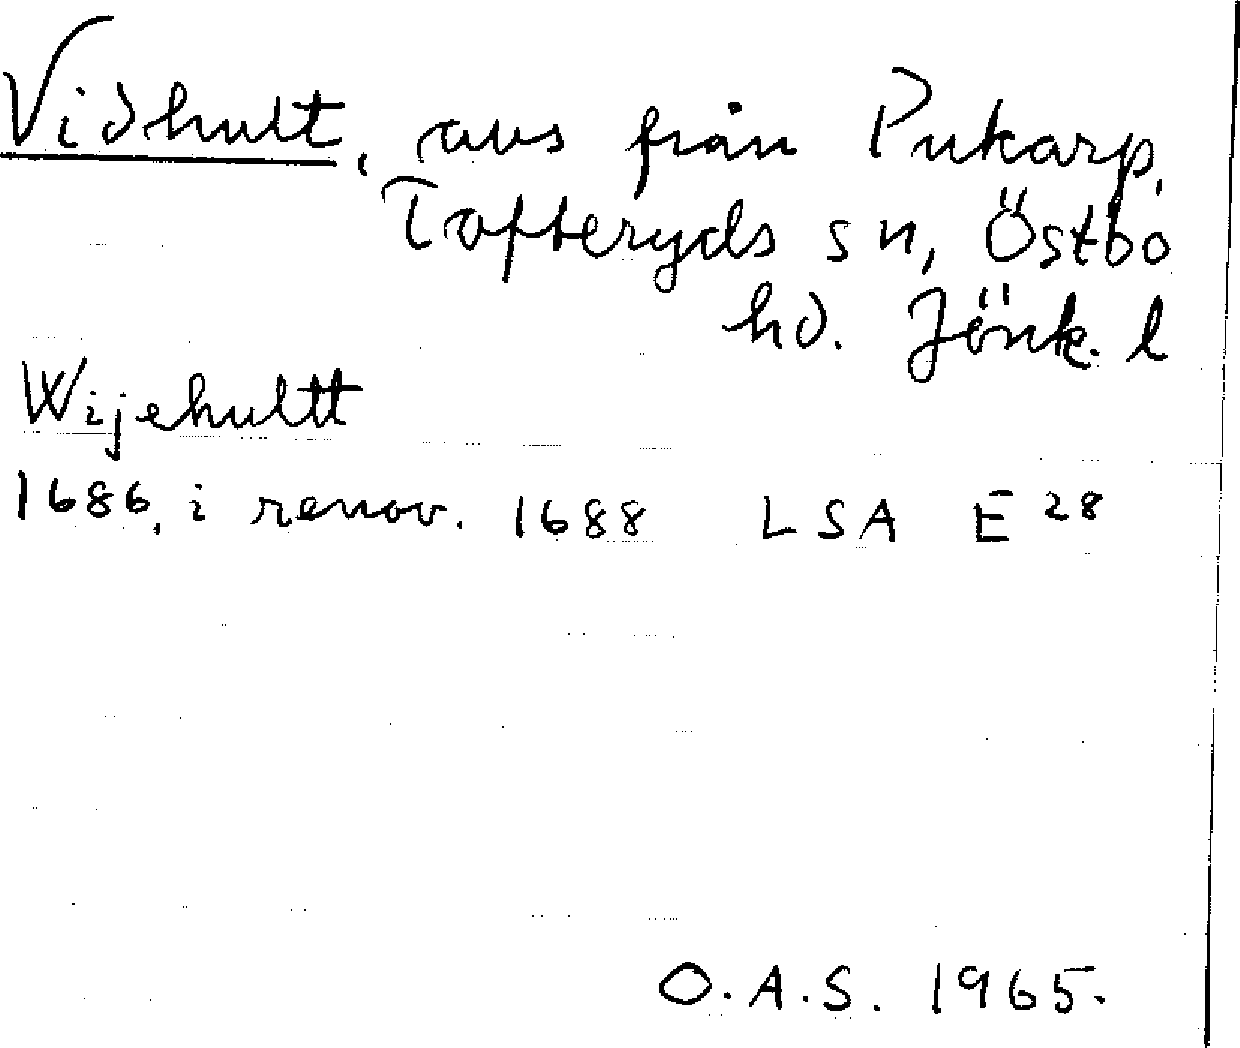 Vidhult, avs från Pukarp,
Tofteryds sn, Östbo
hd. Jönk. l
Wijehultt
1686, i renov. 1688 LSA E 28
O.A.S. 1965.